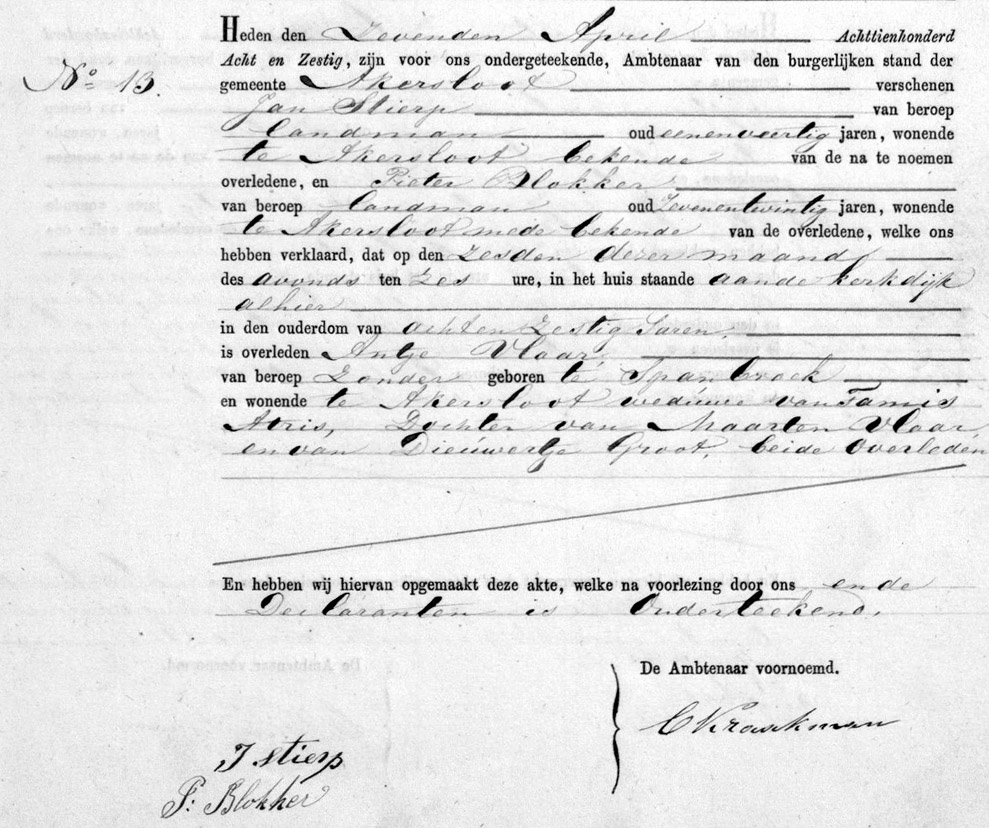 Heden den Zevenden April Achttienhonderd
Acht en Zestig, zijn voor ons ondergeteekende, Ambtenaar van den burgerlijken stand der
No. 13. gemeente Akersloot verschenen
Jan Stierp van beroep
landman oud eenenveertig jaren, wonende
te Akersloot bekende van de na te noemen
overledene, en Pieter Blokker
van beroep landman oud zevenentwintig jaren, wonende
te Akersloot mede bekende van de overledene, welke ons
hebben verklaard, dat op den zesden dezer maand
des avonds ten zes ure, in het huis staande aan de kerkdijk
alhier
in den ouderdom van achtenzestig Jaren
is overleden Antje Vlaar,
van beroep Zonder geboren te Spanbroek
en wonende te Akersloot weduwe van Tamis
Atris, Dochter van Maarten Vlaar
en van Dieuwertje Groot, beide overleden
En hebben wij hiervan opgemaakt deze akte, welke na voorlezing door ons en de
Declaranten is Onderteekend.
De Ambtenaar voornoemd.
C Kraakman
J Stierp
P: Blokker